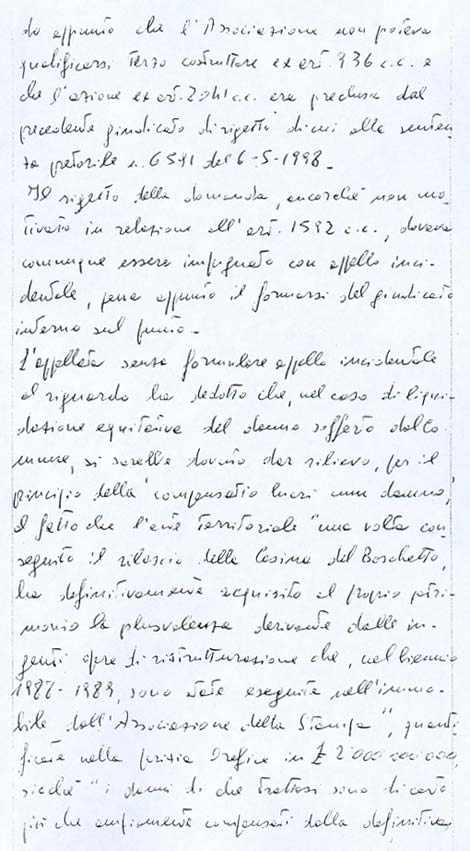 do appunto che l'Associazione non poteva
qualificarsi terzo costruttore ex art. 936 c.c. e
che l'azione ex art. 2041 c.c. era preclusa dal
precedente giudicato di rigetto di cui alla senten-
za pretorile n. 6581 del 6-5-1998.
Il rigetto della domanda, ancorché non mo-
tivato in relazione all'art. 1592 c.c., doveva
comunque essere impugnato con appello inci-
dentale, pena appunto il formarsi del giudicato
interno sul punto.
L'appellata senza formulare appello incidentale
al riguardo ha dedotto che, nel caso di liqui-
dazione equitativa del danno sofferto dal Co-
mune, si sarebbe dovuto dar rilievo, per il
principio della "compensatio lucri cum damno",
al fatto che l'ente territoriale "una volta con-
seguito il rilascio della Casina del Boschetto,
ha definitivamente acquisito al proprio patri-
monio la plusvalenza derivante dalle in-
genti opere di ristrutturazione che, nel biennio
1988-1989, sono state eseguite nell'immo-
bile dall'Associazione della Stampa", quanti-
ficate nella perizia Orefice in £ 2.000.000.000,
sicché "i danni di che trattasi sono di certo
più che ampiamente compensati dalla definitiva